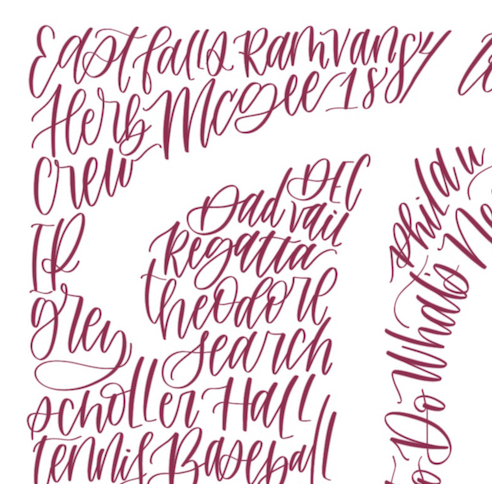 East falls Ramvansy
Herb McGee 188
Crew
IP
grey
DEC
Dad vail
Regatta
theodore
search
scholler Hall
Tennis Baseball
Phild u
Do What's Ne